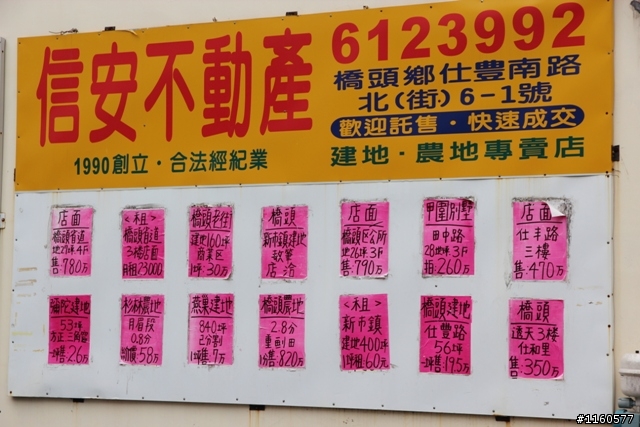 信安不動產
6123992
橋頭鄉仕豐南路
北(街)6-1號
歡迎託售·快速成交
1990創立·合法經紀業
建地·農地專賣店
店面
橋頭省道
地27坪4F
售780万
<租>
橋頭省道
3楼店面
月租23000
橋頭老街
建地160坪
商業区
1坪30万
橋頭
新市鎮建地
数筆
店洽
店面
橋頭区公所
地26坪3F
售790万
甲圍別墅
田中路
28地坪3F
拍260万
店面
仕丰路
三樓
售470万
彌陀建地
53坪
方正三角窗
一坪售26万
杉林農地
月眉段
0.8分
58万
燕巢建地
840坪
已分割
1坪售7万
橋頭農地
2.8分
重劃田
1分售820万
<租>
新市鎮
建地400坪
1坪租60元
橋頭建地
仕豐路
56坪
一坪售19.5万
橋頭
透天3楼
仕和里
售350万
#1160577